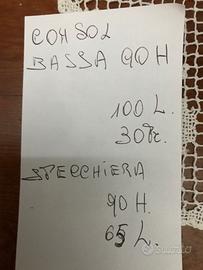 CONSOL
BASSA 90 H
100 L.
30 Pr.
SPECCHIERA
90 H.
65 L.
subito